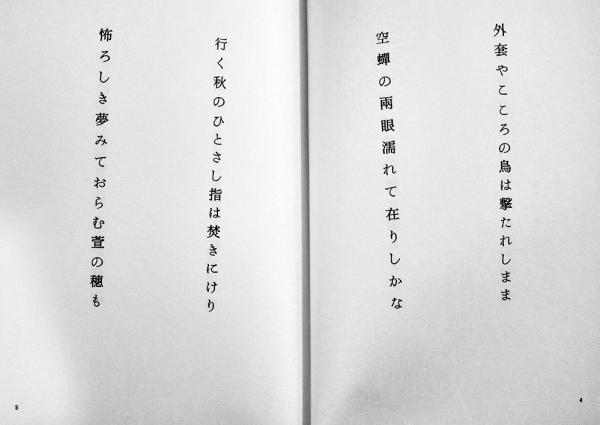 外套やこころの鳥は撃たれしまま
空蟬の兩眼濡れて在りしかな
4
行く秋のひとさし指は焚きにけり
怖ろしき夢みておらむ萱の穂も
5